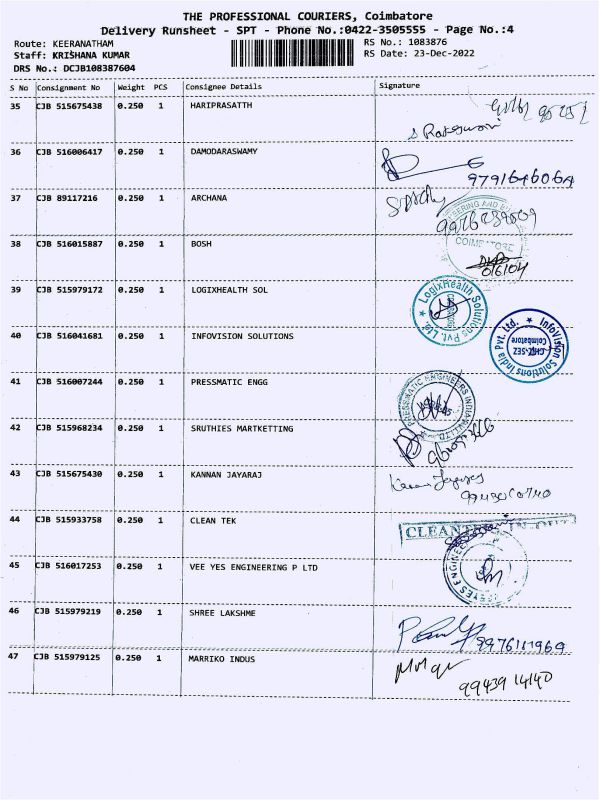 THE PROFESSIONAL COURIERS, Coimbatore
Delivery Runsheet - SPT - Phone No.:0422-3505555 - Page No.:4
Route: KEERANATHAM
RS No.: 1083876
Staff: KRISHANA KUMAR
RS Date: 23-Dec-2022
DRS No.: DCJB108387604
S No Consignment No Weight PCS Consignee Details Signature
35 CJB 515675438 0.250 1 HARIPRASATTH
36 CJB 516006417 0.250 1 DAMODARASWAMY
979164606A
37 CJB 89117216 0.250 1 ARCHANA
38 CJB 516015887 0.250 1 BOSH
COIMBATORE
016104
39 CJB 515979172 0.250 1 LOGIXHEALTH SOL
LogixHealth Solutions Pvt. Ltd.
40 CJB 516041681 0.250 1 INFOVISION SOLUTIONS
InfoVision Solutions India Pvt. Ltd.
CHIL-SEZ
Coimbatore
41 CJB 516007244 0.250 1 PRESSMATIC ENGG
PRESSMATIC ENGINEERS INDIA
42 CJB 515968234 0.250 1 SRUTHIES MARTKETTING
43 CJB 515675430 0.250 1 KANNAN JAYARAJ
44 CJB 515933758 0.250 1 CLEAN TEK
45 CJB 516017253 0.250 1 VEE YES ENGINEERING P LTD
46 CJB 515979219 0.250 1 SHREE LAKSHME
9976111969
47 CJB 515979125 0.250 1 MARRIKO INDUS
9943914140